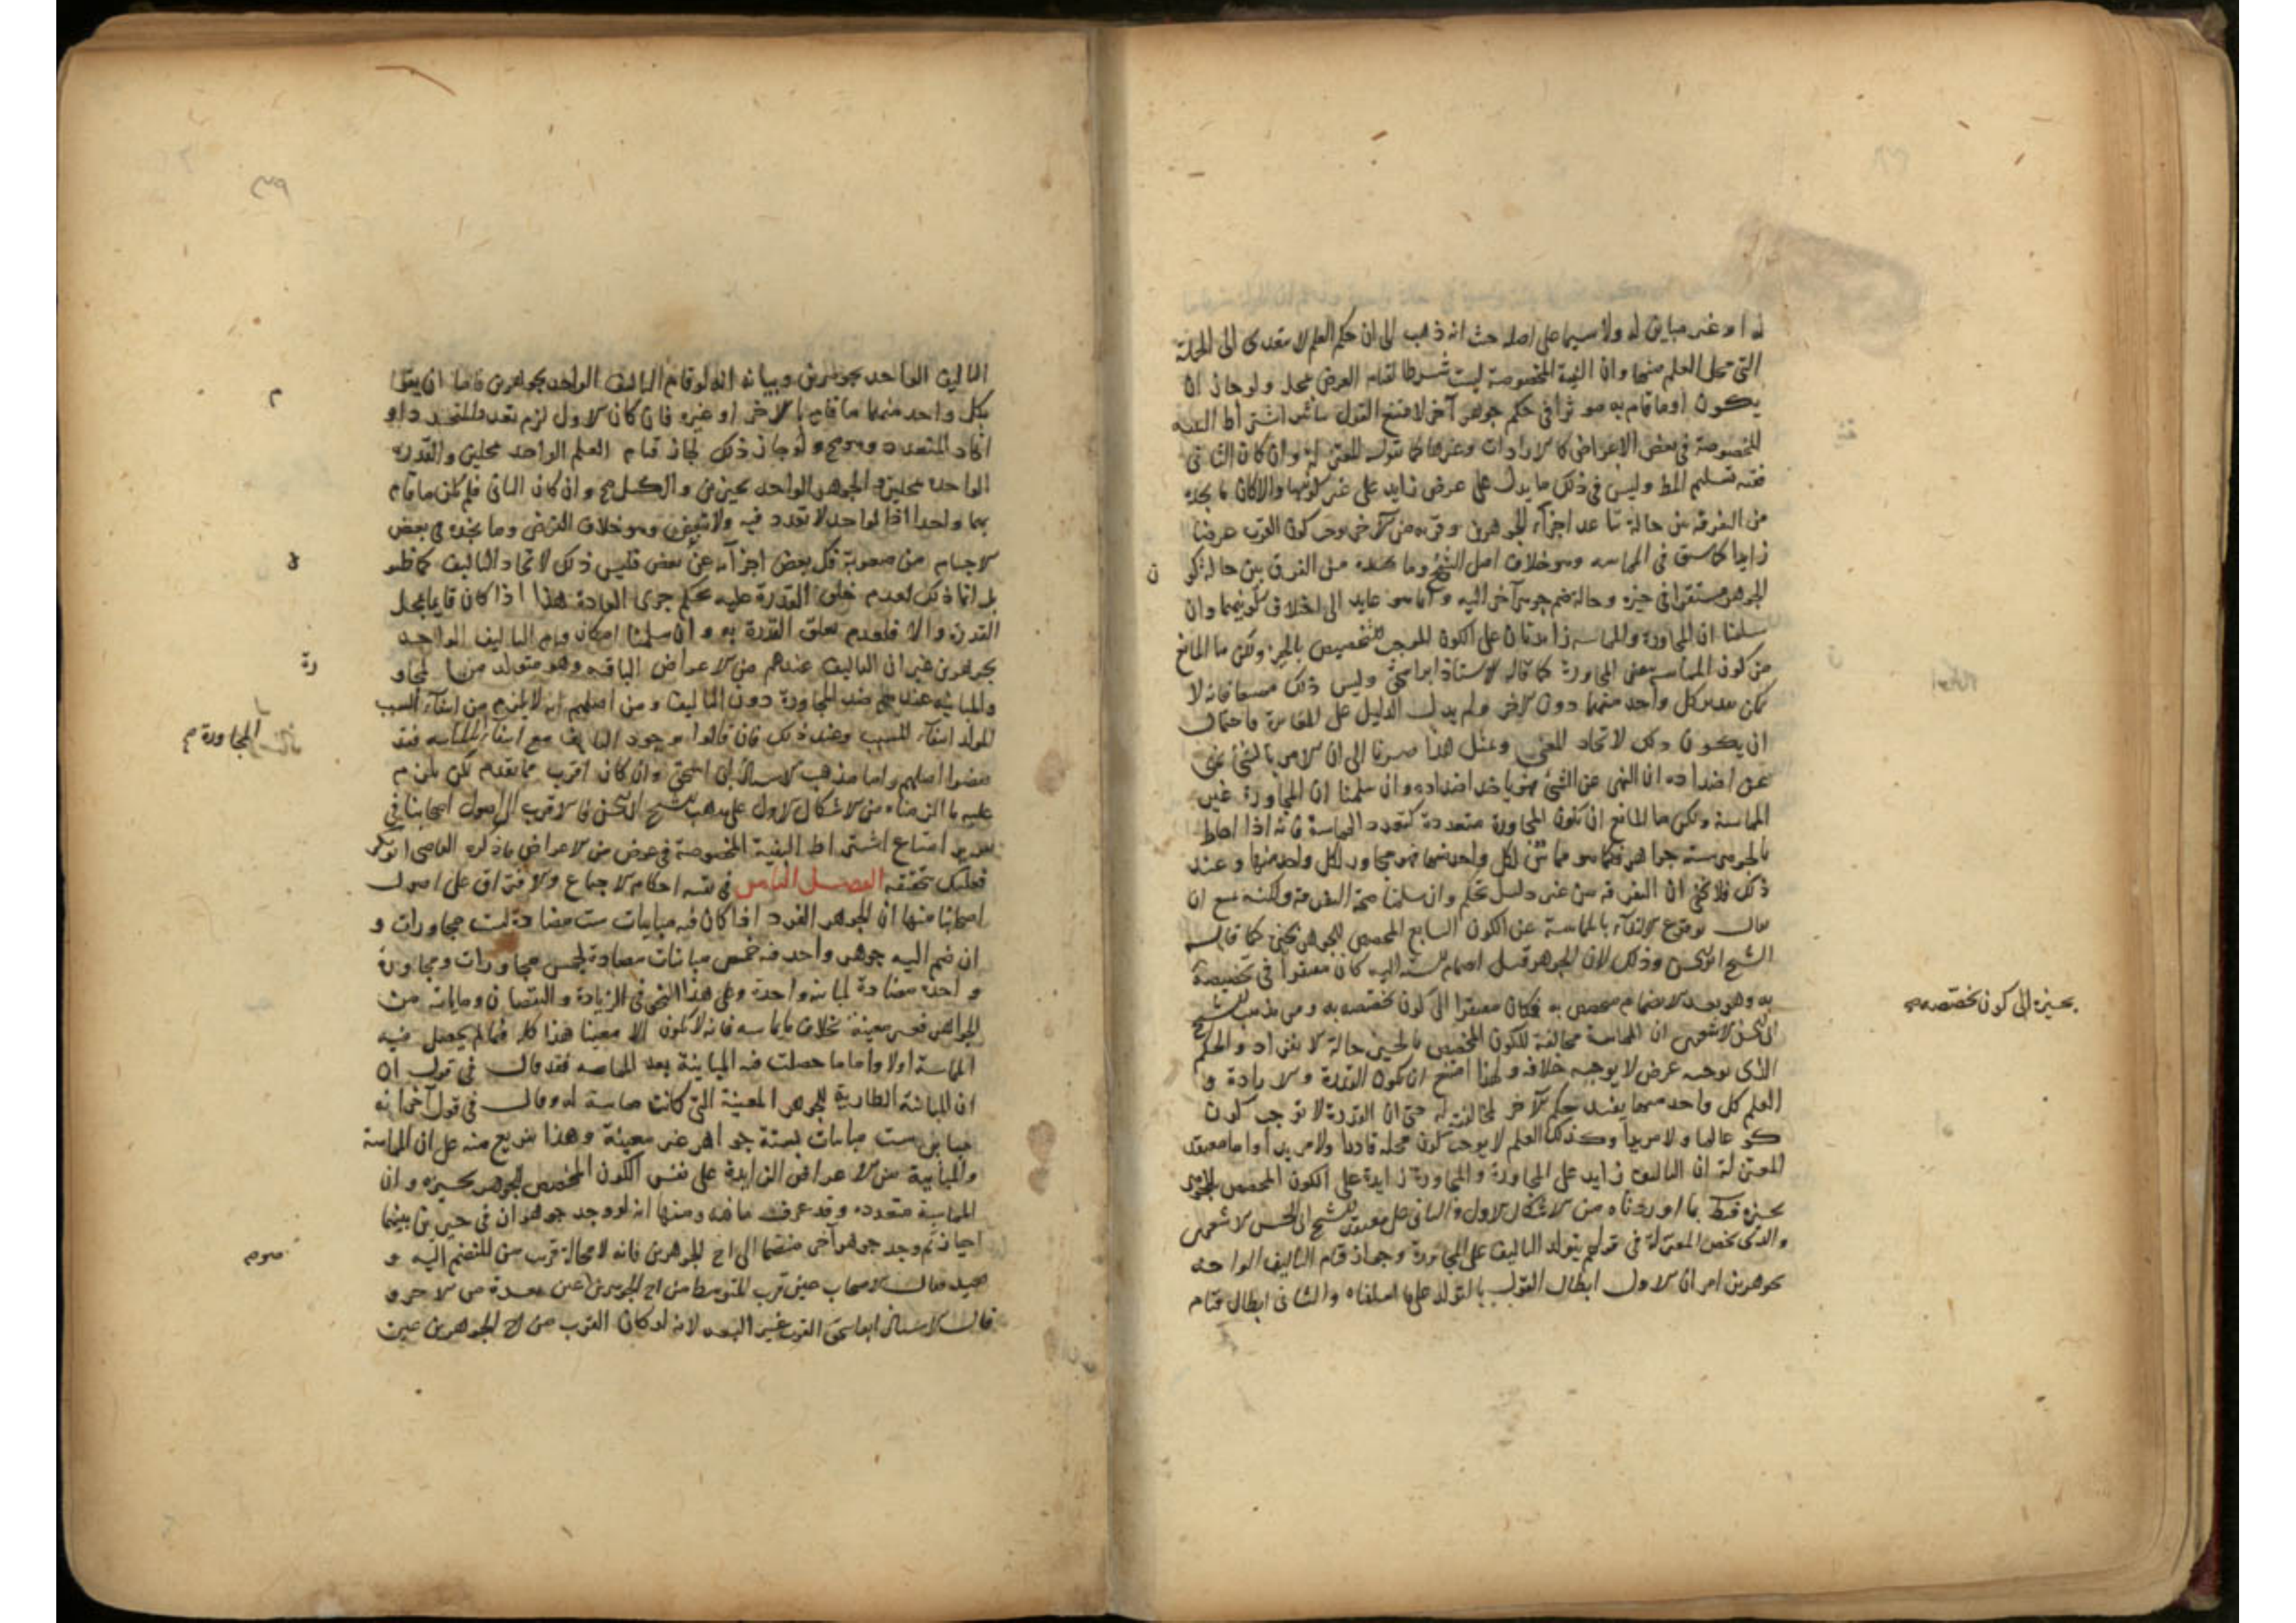 له او غير مباين له ولا سيما على اصله حيث انه ذهب الى ان حكم العلم لا يتعدى الى الجملة
التى محل العلم منها وان البنية المخصوصة ليست شرطا لقيام العرض بمحله ولو جاز ان
يكون او ما قام به موثرا فى حكم جوهر آخر لامتنع القول اشتراط البنية
المخصوصة فى بعض الاعراض كالارادات وغيرها كما تقوله المعتزلة وان كان الثانى
ففيه تسليم المط وليس فى ذلك ما يدل على عرض زايد على غير كونهما والا كان ما نجده
من التفرقة بين حالة تباعد اجزاء الجوهرين وقربه من الآخر موجب كون القرب عرضا
زايدا كما سبق فى المماسة وهو خلاف اصل الشيخ وما نجده من الفرق بين حالة كون
الجوهر مستقرا فى حيزه وحالة ضم جوهر آخر اليه انما هو عايد الى اختلاف كونيهما وان
سلمنا ان المجاورة والمماسة زايدتان على الكون الموجب للتخصيص بالحيز ولكن ما المانع
من كون المماسة بمعنى المجاورة كما قاله الاستاذ ابو اسحق وليس ذلك ممتنعا فانه لا
يمكن تقدير كل واحد منهما دون الآخر ولم يدل الدليل على المغايرة فاحتمال
ان يكون ذلك لاتحاد المعنى وبمثل هذا صرنا الى ان الامر بالشئ نهى
عن اضداده وان النهى عن الشئ امر باحد اضداده وان سلمنا ان المجاورة غير
المماسة ولكن ما المانع ان تكون المجاورة متعددة كتعدد المماسة فانه اذا احاط
بالجوهر ستة جواهر فكما هو مماس لكل واحد منها فهو مجاور لكل واحد منها وعند
ذلك فلا يخفى ان التفرقة من غير دليل تحكم وان سلمنا صحة التفرقة ولكنه يمتنع ان
يقال بوقوع الاكتفاء بالمماسة عن الكون السابع المخصص للجوهر بحيزه كما قاله
الشيخ ابو الحسن وذلك لان الجوهر قبل انضمام الستة اليه كان مفتقرا فى تخصيصه
به وهو بعد الانضمام مختص به فكان مفتقرا الى كون يخصصه به ومن مذهب الشيخ
ابى الحسن الاشعرى ان المماسة مخالفة للكون المخصص بالحيز حالة الانفراد والحكم
الذى يوجبه عرض لا يوجبه خلافه ولهذا امتنع ان يكون القدرة والارادة و
العلم كل واحد منهما يفيد حكم الآخر لمخالفته له حتى ان القدرة لا توجب كون
عالما ولا مريدا وكذلك العلم لا يوجب كون محله قادرا ولا مريدا واما معتقد
المعتزلة ان التاليف زايد على المجاورة والمجاورة زايدة على الكون المخصص للجوهر
بحيزه فبط بما اوردناه من الاشكال الاول والثانى على معتقد الشيخ ابى الحسن الاشعرى
والذى يخص المعتزلة فى قولهم بتولد التاليف على المجاورة وجواز قيام التاليف الواحد
بجوهرين امران الاول ابطال القول بالتولد على ما اسلفناه والثانى ابطال قيام
بحيزه الى كون يخصصه
التاليف الواحد بجوهرين وبيانه انه لو قام التاليف الواحد بجوهرين فاما ان يقوم
بكل واحد منهما ما قام بالآخر او غيره فان كان الاول لزم تعدد المتحد او
اتحاد المتعدد وهو مح ولو جاز ذلك لجاز قيام العلم الواحد بمحلين والقدرة
الواحدة بمحلين والجوهر الواحد بحيزين والكل مح وان كان الثانى فلم يكن ما قام
بهما واحدا اذ الواحد لا تعدد فيه ولا تبعض وهو خلاف الفرض وما نجده فى بعض
الاجسام من صعوبة فك بعض اجزائه عن بعض فليس ذلك لاتحاد التاليف كما ظن
بل انما ذلك لعدم خلق القدرة عليه بحكم جرى العادة هذا اذا كان قايما بمحل
القدرة والا فلعدم تعلق القدرة به وان سلمنا امكان قيام التاليف الواحد
بجوهرين غير ان التاليف عندهم من الاعراض الباقية وهو متولد من المجاورة
والمباينة عندهم ضد المجاورة دون التاليف ومن اصلهم انه لا يلزم من انتفاء السبب
المولد انتفاء المسبب وعند ذلك فان قالوا بوجود التاليف مع انتفاء المماسة فقد
نقضوا اصلهم واما مذهب الاستاذ ابى اسحق وان كان اقرب مما تقدم لكن يلزم
عليه ما الزمناه من الاشكال الاول على مذهب الشيخ ابى الحسن فالاقرب الى اصول اصحابنا فى
امتناع اشتراط البنية المخصوصة فى عرض من الاعراض ما ذكره القاضى ابو بكر
فعليك بتحقيقه الفصل الثامن فى بقية احكام الاجتماع والافتراق على اصول
اصحابنا منها ان الجوهر الفرد اذا كان فيه مباينات ست مضادة لست مجاورات و
ان ضم اليه جوهر واحد ففيه خمس مباينات مضادة لخمس مجاورات ومجاورة
واحدة مضادة لمباينة واحدة وعلى هذا النحو فى الزيادة والنقصان وما يباينه من
الجواهر فغير معينة بخلاف ما يماسه فانه لا يكون الا معينا هذا كله فيما لم يحصل فيه
المماسة اولا واما ما حصلت فيه المباينة بعد المماسة فقد قال فى قول ان
ان المباينة الطارية للجوهر المعينة التى كانت مماسة له وقال فى قول آخر انه
مباين ست مباينات لستة جواهر غير معينة وهذا تفريع منه على ان المماسة
والمباينة من الاعراض الزايدة على نفس الكون المخصص للجوهر بحيزه وان
المماسة متعددة وقد عرفت ما فيه ومنها انه لو وجد جوهران فى حيزين بينهما
احياز ثم وجد جوهر آخر منضما الى احد الجوهرين فانه لا محالة قرب من المنضم اليه و
بعيد فقال الاصحاب عين قرب المتوسط من احد الجوهرين عين بعده من الآخر و
قال الاستاذ ابو اسحق القرب غير البعد لانه لو كان القرب من احد الجوهرين عين
المجاورة